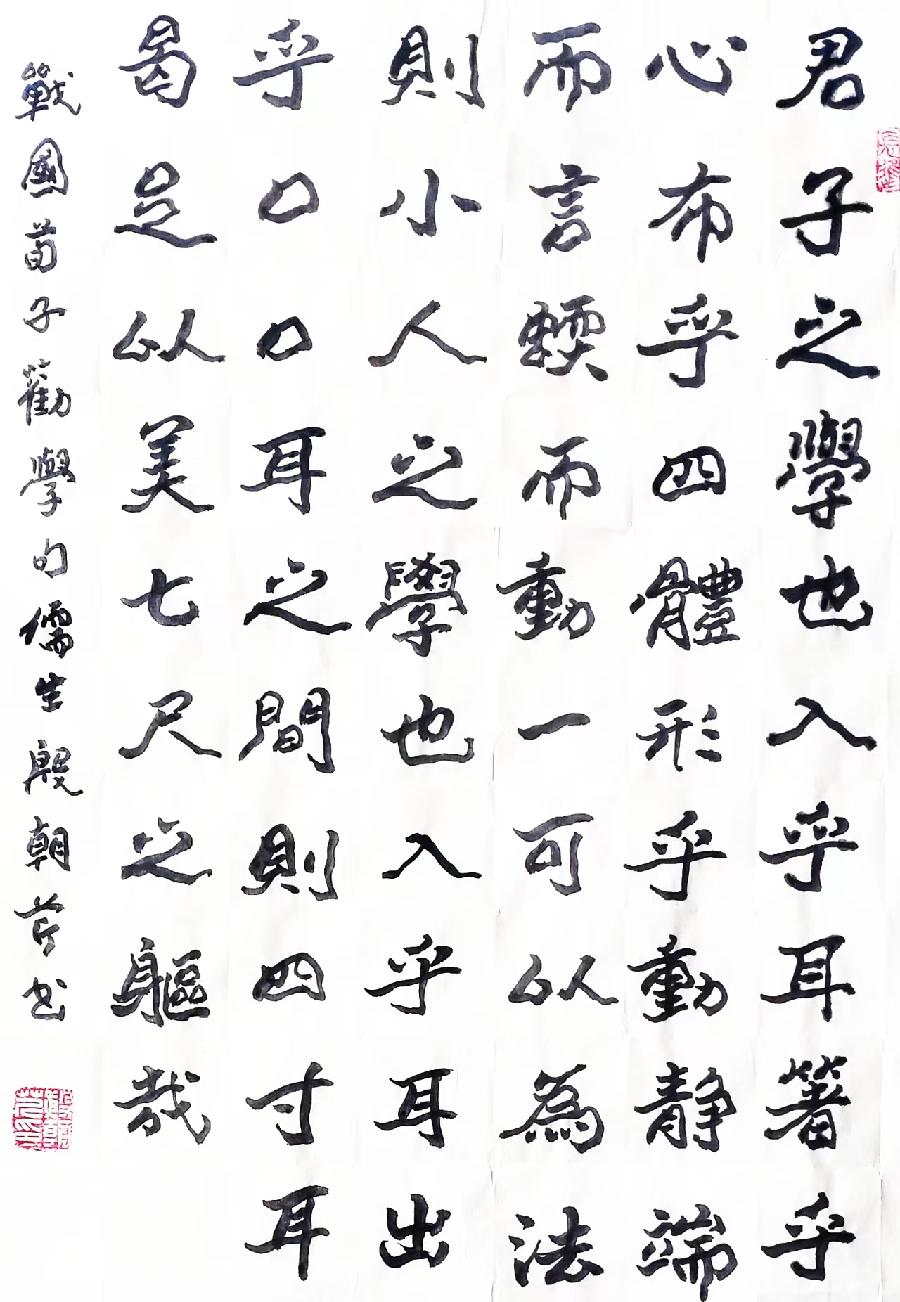 君子之學也入乎耳箸乎
心布乎四體形乎動静端
而言蝡而動一可以為法
則小人之學也入乎耳出
乎口口耳之間則四寸耳
曷足以美七尺之軀哉
戰國荀子勸學句儒生殷朝芹书